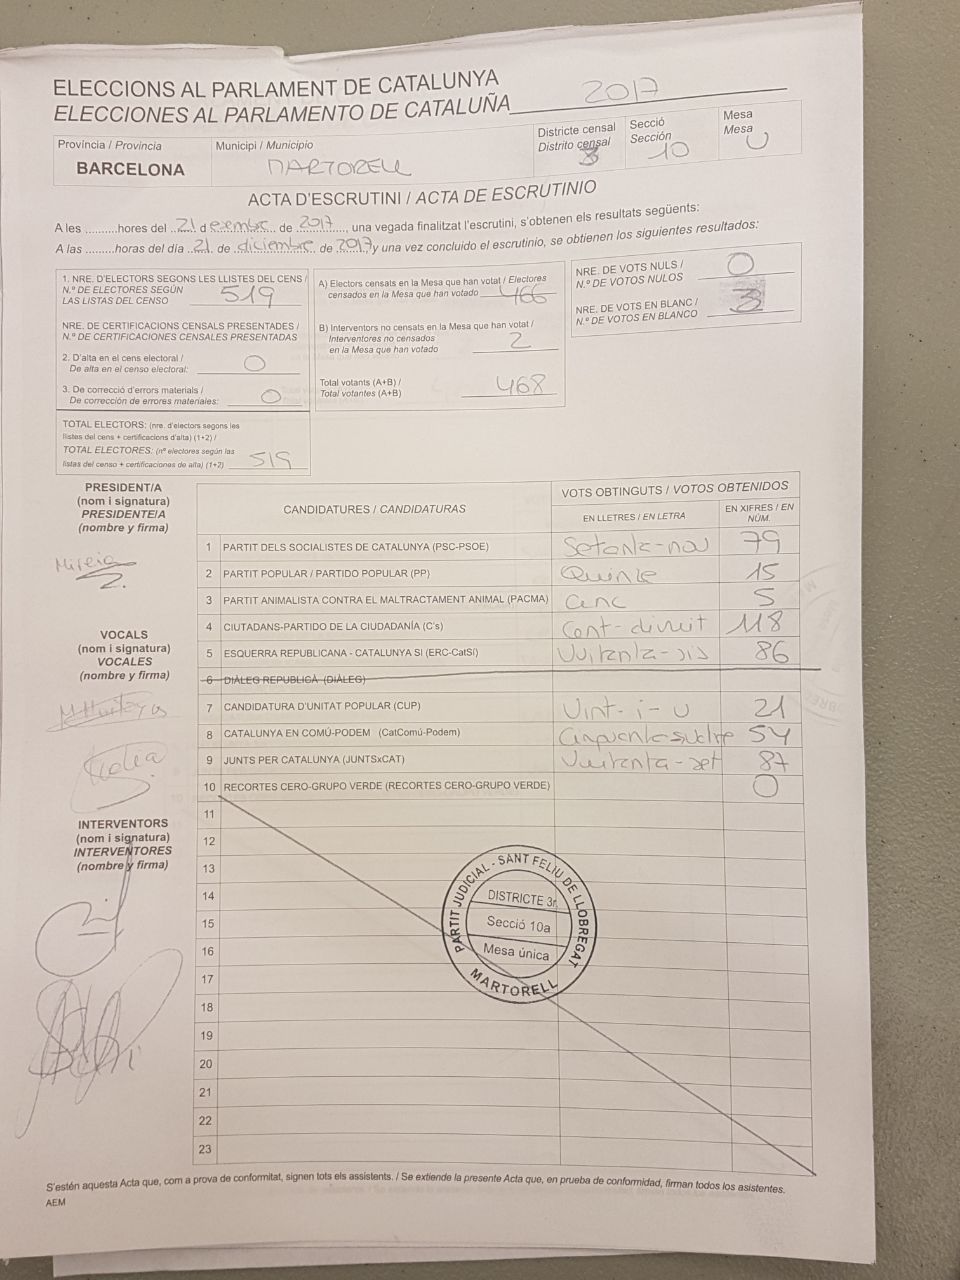 ELECCIONS AL PARLAMENT DE CATALUNYA
ELECCIONES AL PARLAMENTO DE CATALUÑA 2017
Província / Provincia
BARCELONA
Municipi / Municipio
MARTORELL
Districte censal
Distrito censal
3
Secció
Sección
10
Mesa
Mesa
U
ACTA D'ESCRUTINI / ACTA DE ESCRUTINIO
A les ..........hores del 21 de desembre de 2017, una vegada finalitzat l'escrutini, s'obtenen els resultats següents:
A las .........horas del día 21 de diciembre de 2017 y una vez concluido el escrutinio, se obtienen los siguientes resultados:
1. NRE. D'ELECTORS SEGONS LES LLISTES DEL CENS /
N.º DE ELECTORES SEGÚN
LAS LISTAS DEL CENSO 519
NRE. DE CERTIFICACIONS CENSALS PRESENTADES /
N.º DE CERTIFICACIONES CENSALES PRESENTADAS
2. D'alta en el cens electoral /
De alta en el censo electoral: 0
3. De correcció d'errors materials /
De corrección de errores materiales: 0
TOTAL ELECTORS: (nre. d'electors segons les
llistes del cens + certificacions d'alta) (1+2) /
TOTAL ELECTORES: (nº electores según las
listas del censo + certificaciones de alta) (1+2) 519
A) Electors censats en la Mesa que han votat / Electores
censados en la Mesa que han votado 466
B) Interventors no censats en la Mesa que han votat /
Interventores no censados
en la Mesa que han votado 2
Total votants (A+B) /
Total votantes (A+B) 468
NRE. DE VOTS NULS /
N.º DE VOTOS NULOS 0
NRE. DE VOTS EN BLANC /
N.º DE VOTOS EN BLANCO 3
PRESIDENT/A
(nom i signatura)
PRESIDENTE/A
(nombre y firma)
Mireia
VOCALS
(nom i signatura)
VOCALES
(nombre y firma)
INTERVENTORS
(nom i signatura)
INTERVENTORES
(nombre y firma)
CANDIDATURES / CANDIDATURAS
VOTS OBTINGUTS / VOTOS OBTENIDOS
EN LLETRES / EN LETRA
EN XIFRES / EN NÚM.
1 PARTIT DELS SOCIALISTES DE CATALUNYA (PSC-PSOE) Setanta-nou 79
2 PARTIT POPULAR / PARTIDO POPULAR (PP) Quinze 15
3 PARTIT ANIMALISTA CONTRA EL MALTRACTAMENT ANIMAL (PACMA) Cinc 5
4 CIUTADANS-PARTIDO DE LA CIUDADANÍA (C's) Cent-divuit 118
5 ESQUERRA REPUBLICANA - CATALUNYA SI (ERC-CatSí) Vuitanta-sis 86
6 DIÀLEG REPUBLICÀ (DIÀLEG)
7 CANDIDATURA D'UNITAT POPULAR (CUP) Vint-i-u 21
8 CATALUNYA EN COMÚ-PODEM (CatComú-Podem) 54
9 JUNTS PER CATALUNYA (JUNTSxCAT) Vuitanta-set 87
10 RECORTES CERO-GRUPO VERDE (RECORTES CERO-GRUPO VERDE) 0
11
12
13
14
15
16
17
18
19
20
21
22
23
PARTIT JUDICIAL - SANT FELIU DE LLOBREGAT
DISTRICTE 3r.
Secció 10a
Mesa única
MARTORELL
S'estén aquesta Acta que, com a prova de conformitat, signen tots els assistents. / Se extiende la presente Acta que, en prueba de conformidad, firman todos los asistentes.
AEM